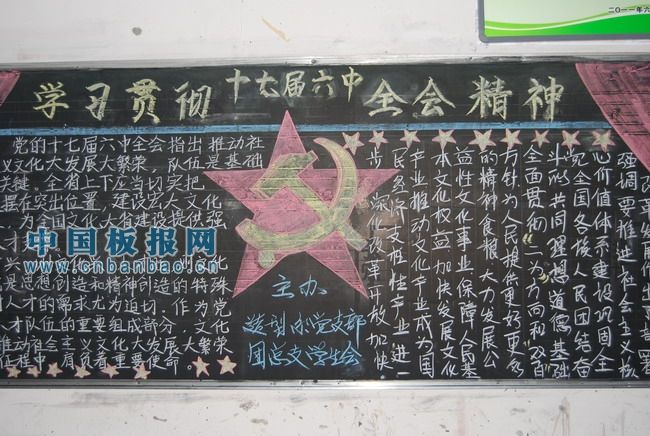 二〇一一年六
学习贯彻十七届六中全会精神
党的十七届六中全会指出推动社
义文化大发展大繁荣 队伍是基础
关键。全省上下应当切实把
摆在突出位置，建设宏大文化
为全国文化大省建设提供强
才
中国板报网
www.cnbanbao.cn
是思想创造和精神创造的特殊
人才的需求尤为迫切，作为党
人才队伍的重要组成部分，文化
推动社会主义文化大发展大繁荣
征程中，肩负着重要使命。
主办
造型小学党支部
团总支学生会
强调要推进社会主义核
心价值体系建设巩固全
党全国各族人民团结奋
斗的共同理想道德基础
全面贯彻“二为”方向和“双百”
方针，为人民提供更好更多
的精神食粮，大力发展公
益性文化事业，保障人民基
本文化权益，加快发展文化
产业，推动文化产业成为国
民经济支柱性产业，进一
步深化改革开放，加快